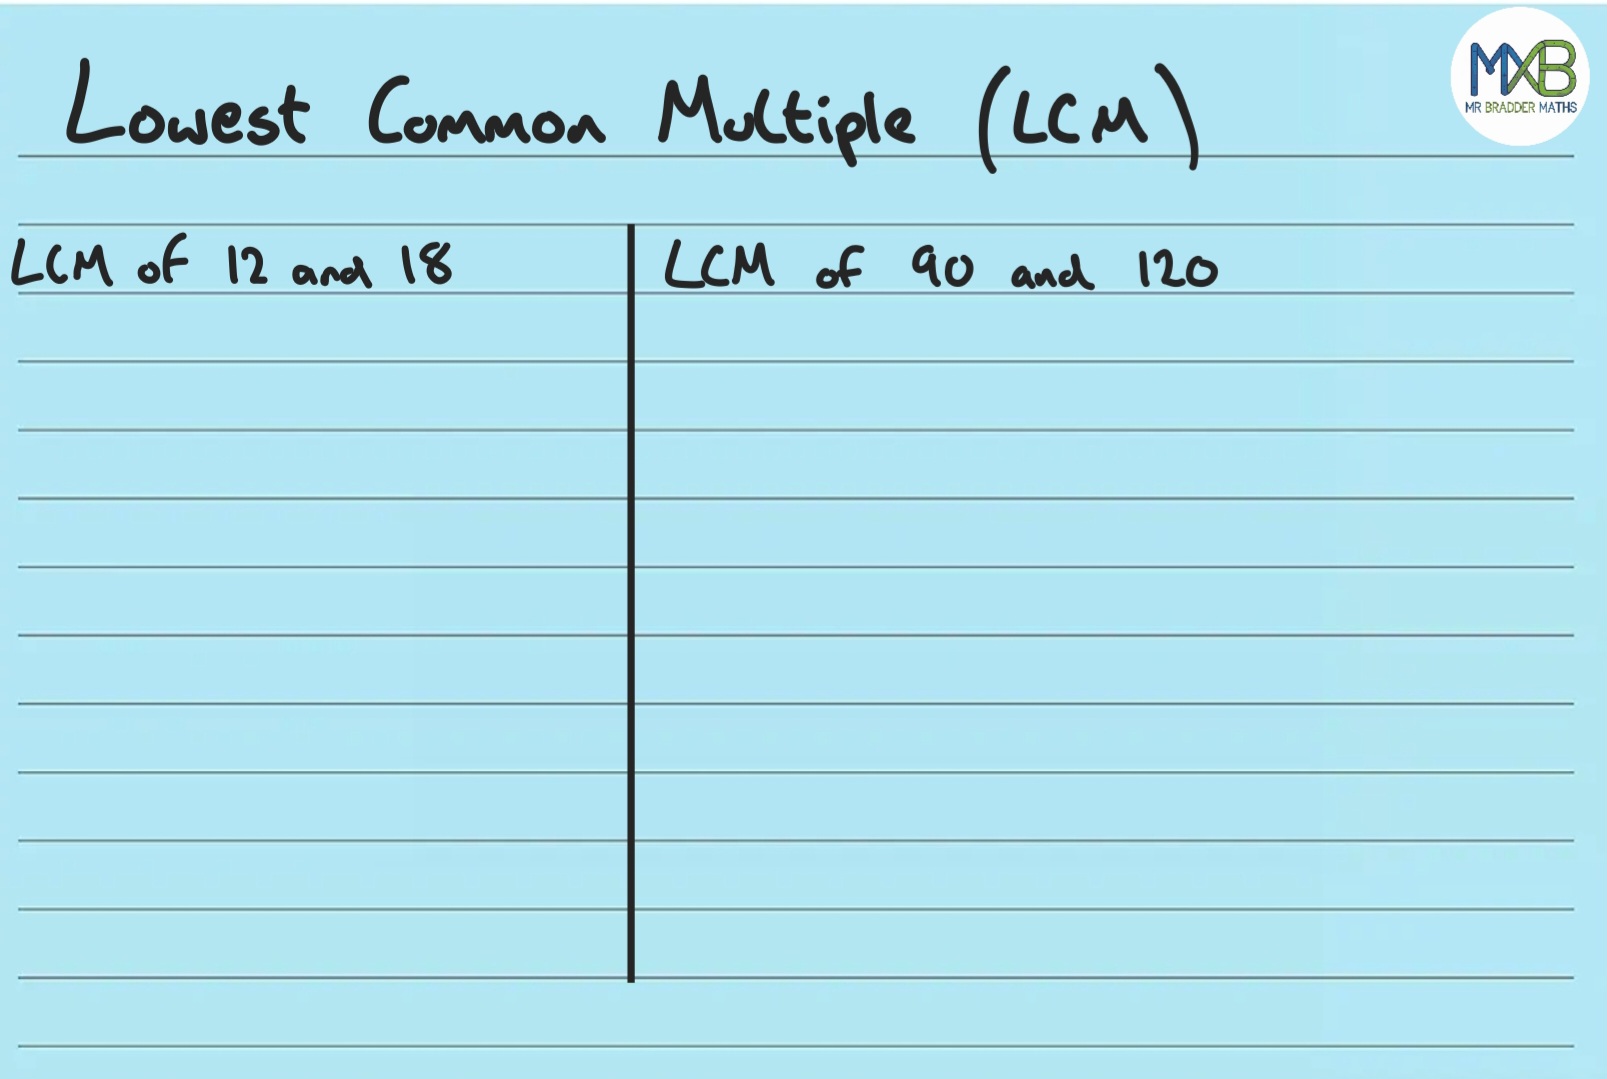 Lowest Common Multiple (LCM)
MXB
MR BRADDER MATHS
LCM of 12 and 18
LCM of 90 and 120